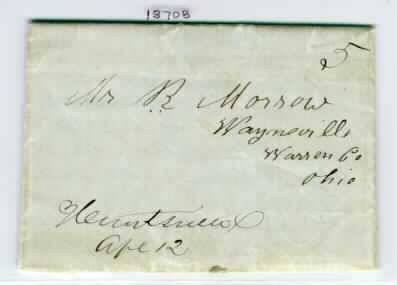 13708
5
Mr R Morrow
Waynesville
Warren Co
Ohio
Huntsville
Apl 12